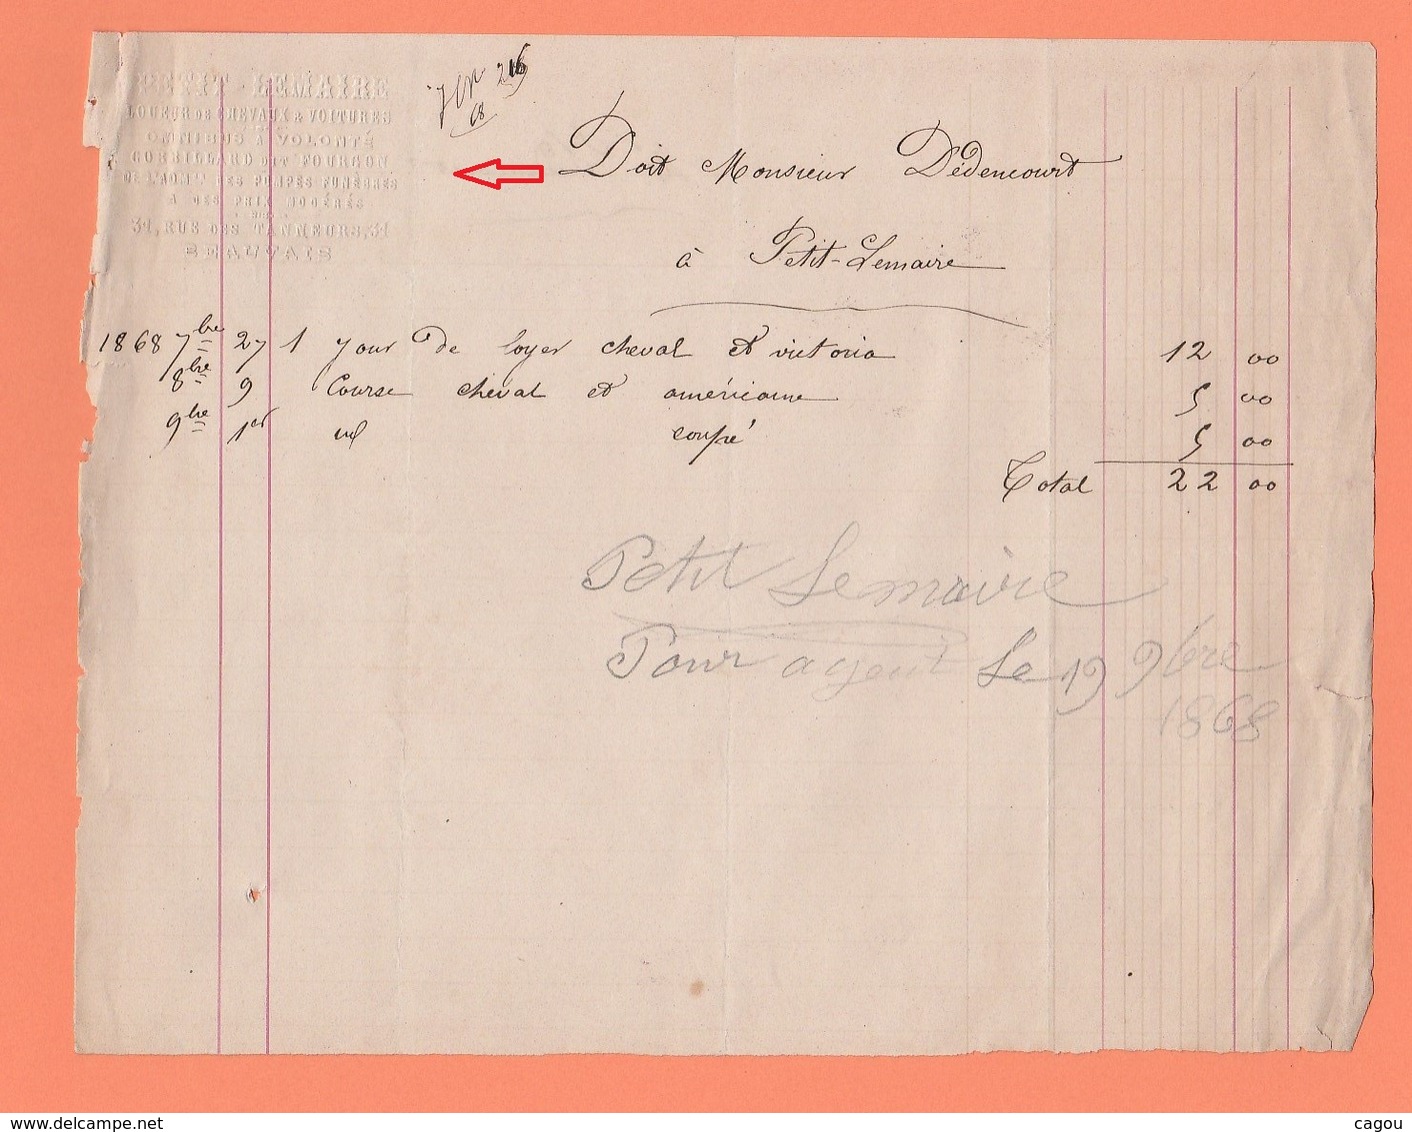 PETIT-LEMAIRE
LOUEUR DE CHEVAUX & VOITURES
OMNIBUS A VOLONTÉ
CORBILLARD DIT FOURGON
DE L'ADMon DES POMPES FUNÈBRES
A DES PRIX MODÉRÉS
31, RUE DES TANNEURS, 31
BEAUVAIS
216
68
Doit Monsieur Dédencourt
à Petit-Lemaire
1868 7bre 27 1 jour de loyer cheval et victoria 12 00
8bre 9 Course cheval et américaine 5 00
9bre 1er id coupé 5 00
Total 22 00
Petit Lemaire
Pour agent Le 19 9bre
1868
www.delcampe.net
cagou